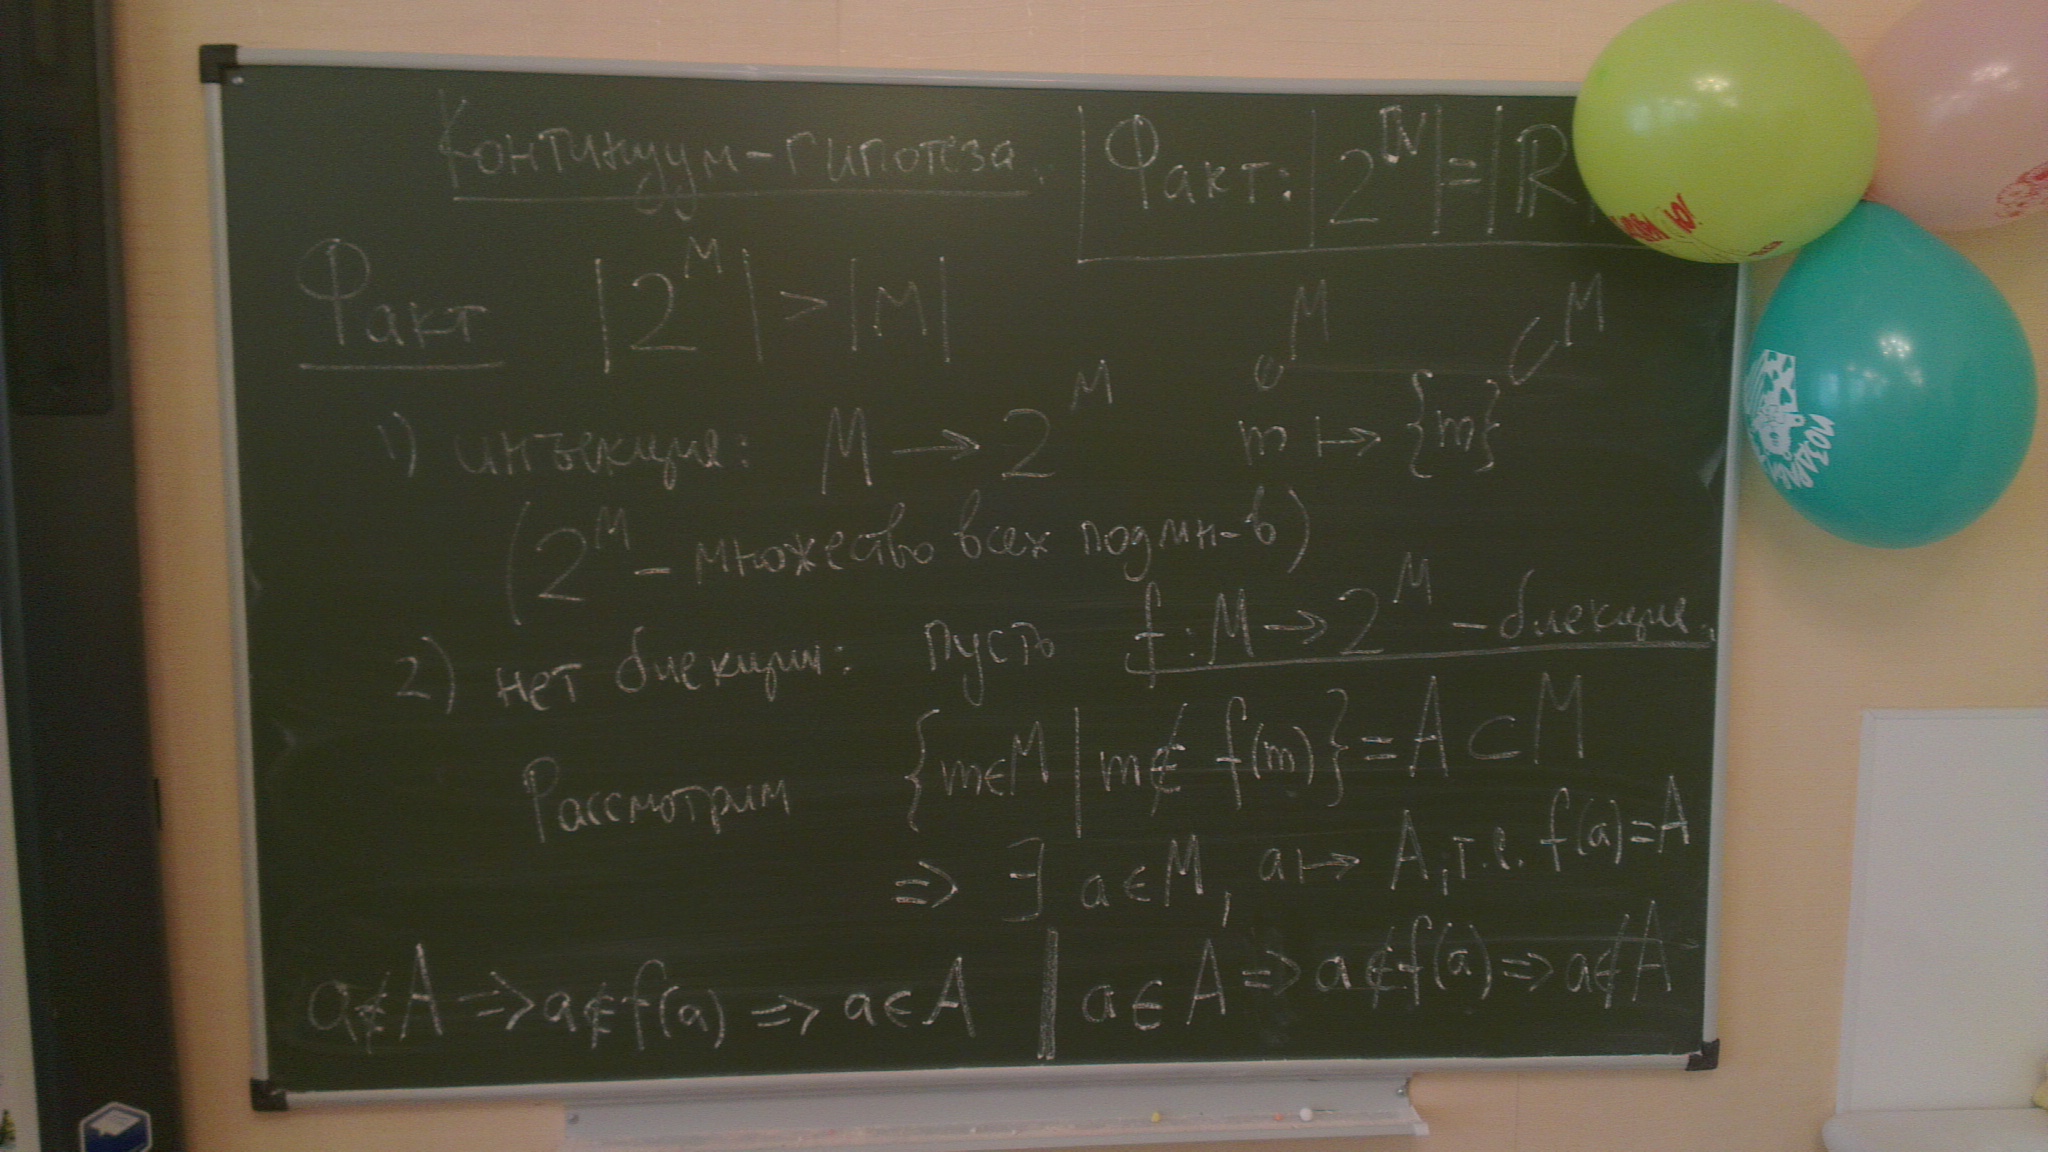 Континуум-гипотеза.
Факт: |2^ℕ|=|ℝ
Факт |2^M| > |M|
M M
∪ ⊂
1) инъекция: M → 2^M m ↦ {m}
(2^M - множество всех подмн-в)
2) нет биекции: пусть f: M → 2^M - биекция.
Рассмотрим {m∈M | m∉f(m)} = A ⊂ M
⇒ ∃ a∈M, a ↦ A, т.е. f(a)=A
a∉A ⇒ a∉f(a) ⇒ a∈A | a∈A ⇒ a∉f(a) ⇒ a∉A